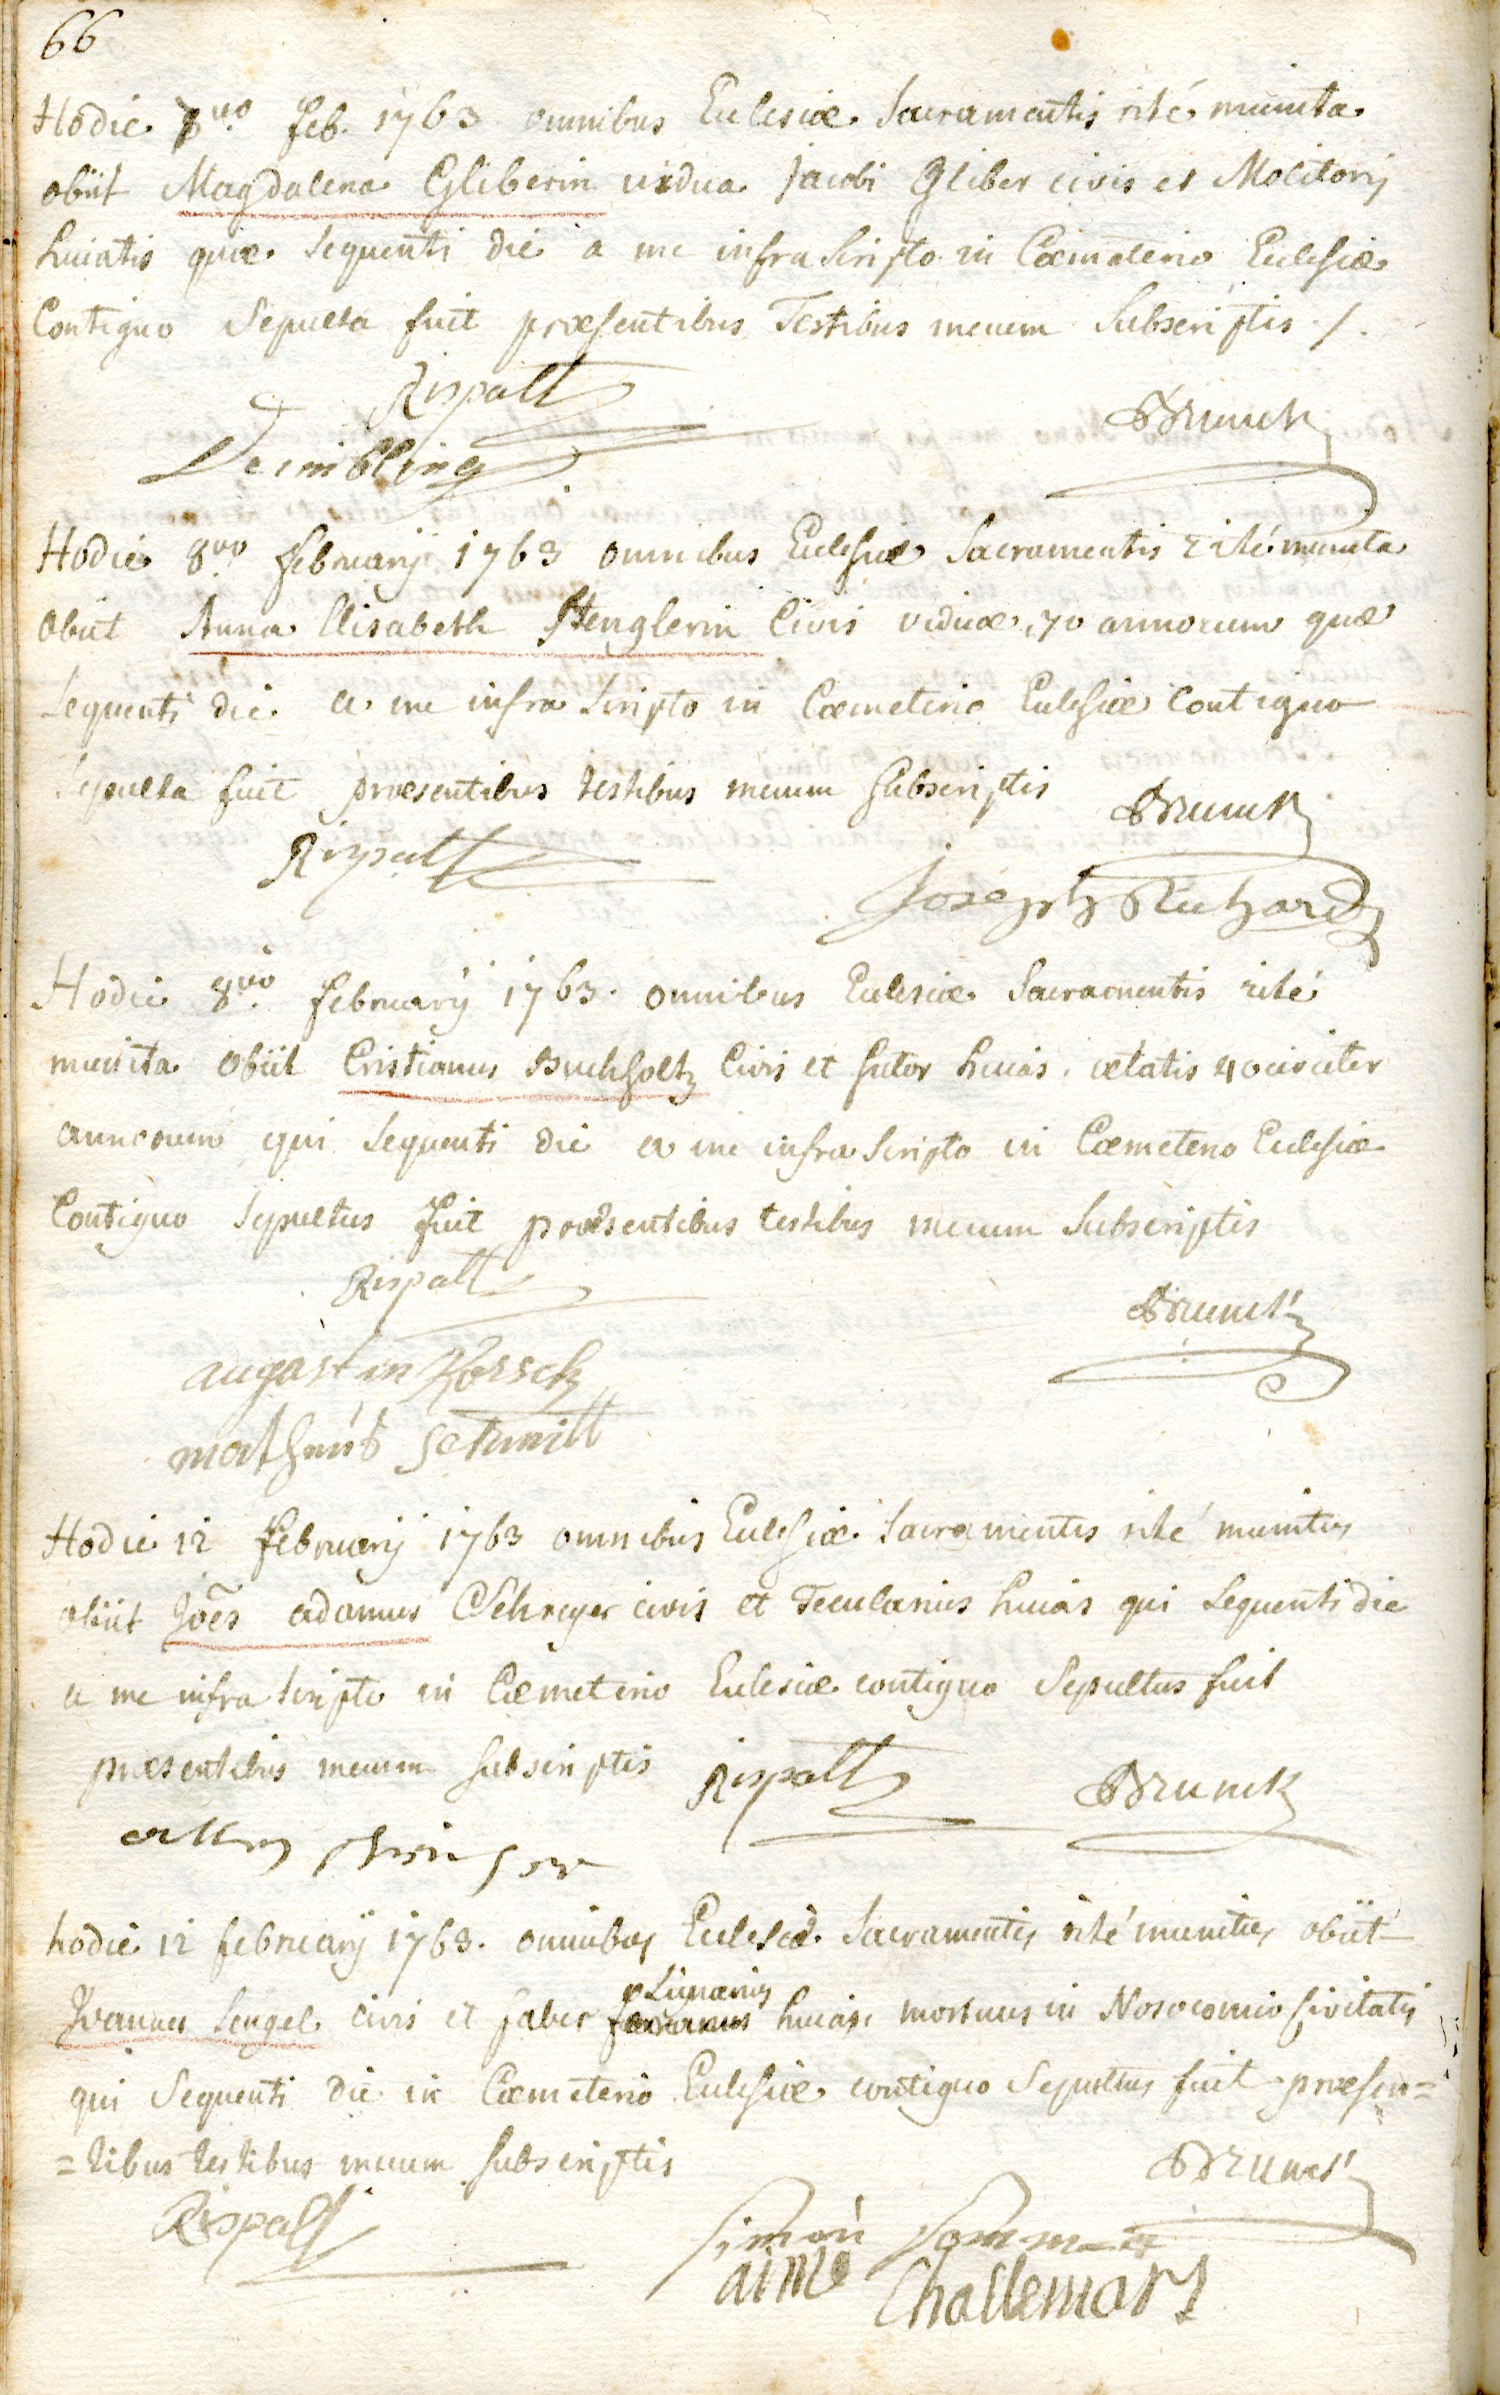 66
Hodie 8vo feb. 1763 omnibus Eclesiæ Sacramentis rité munita
obiit Magdalena Gliberin vidua Jacobi Gliber civis et Molitorij
huiatis quæ sequenti die a me infra scripto in Cæmeterio Eclesiæ
Contiguo Sepulta fuit præsentibus Testibus mecum Subscriptis ./.
Rispalt
Brunck
Deimbling
Hodie 8vo februarij 1763 omnibus Eclesiæ Sacramentis rité munita
Obiit Anna Elisabeth Stenglerin Civis viduæ 70 annorum quæ
sequenti die a me infra scripto in Cæmeterio Eclesiæ Contiguo
Sepulta fuit præsentibus testibus mecum Subscriptis
Brunck
Rispalt
Joseph Richard
Hodie 8vo februarij 1763. omnibus Eclesiæ Sacramentis rité
munita Obiit Cristianus Buchholtz Civis et sutor huias. ætatis 40 circiter
annorum qui sequenti die a me infra scripto in Cæmeterio Eclesiæ
Contiguo Sepultus fuit præsentibus testibus mecum Subscriptis
Rispalt
Brunck
augastin
Schmitt
Hodie 12 februarij 1763 omnibus Eclesiæ Sacramentis rité munitus
obiit Joēs adamus Schreyer civis et Teculanius huias qui sequenti die
a me infra scripto in Cæmeterio Eclesiæ contiguo Sepultus fuit
præsentibus mecum subscriptis Rispalt Brunck
hodie 12 februarij 1763. omnibus Eclesiæ Sacramentis rité munitus obiit
Joannes Sengel civis et faber Lignarius huias, mortuus in Nosocomio Civitatis
qui Sequenti die in Cæmeterio Eclesiæ contiguo Sepultus fuit præsen=
=tibus testibus mecum subscriptis
Brunck
Rispalt
Simon Sommer
aime Challemars